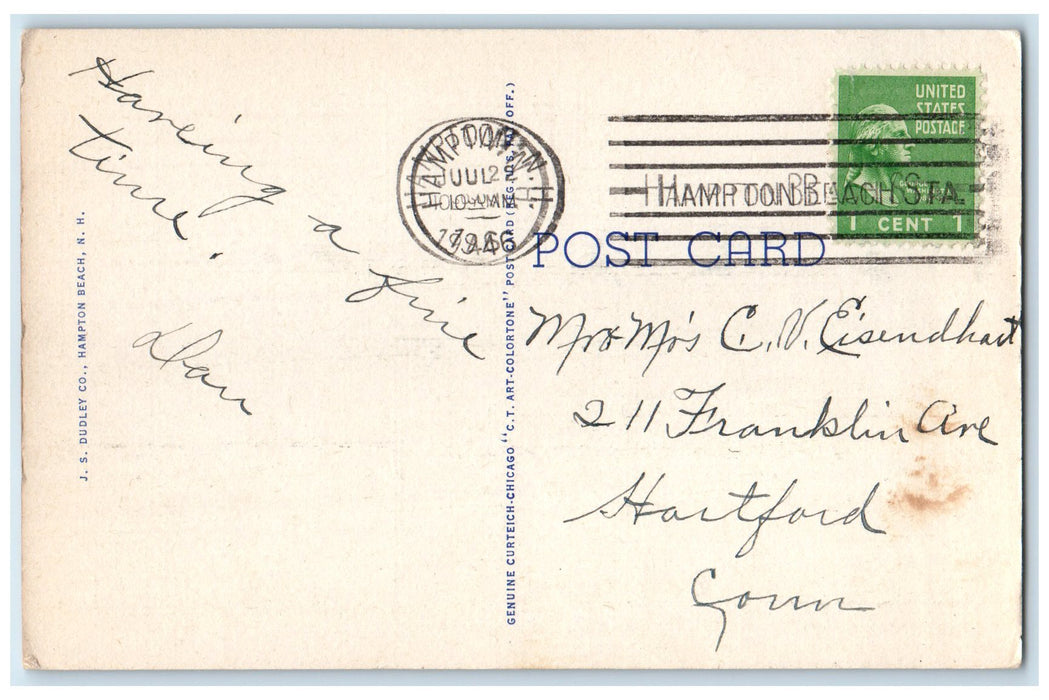 Having a fine
time.
Dan
J. S. DUDLEY CO., HAMPTON BEACH, N. H.
GENUINE CURTEICH-CHICAGO "C.T. ART-COLORTONE" POST CARD (REG. U.S. OFF.)
HAMPTON N. H.
JUL 2
1946
HAMPTON BEACH STA.
UNITED
STATES
POSTAGE
1 CENT 1
POST CARD
Mr & Mrs C. V. Eisendhart
211 Franklin Ave
Hartford
Conn